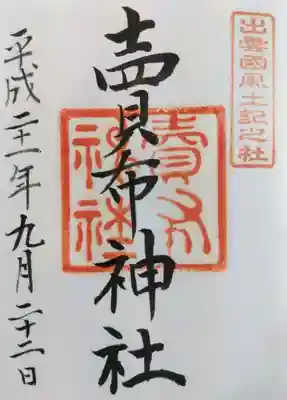 出雲國風土記之社
賣布神社
賣布
神社
平成二十一年九月二十二日